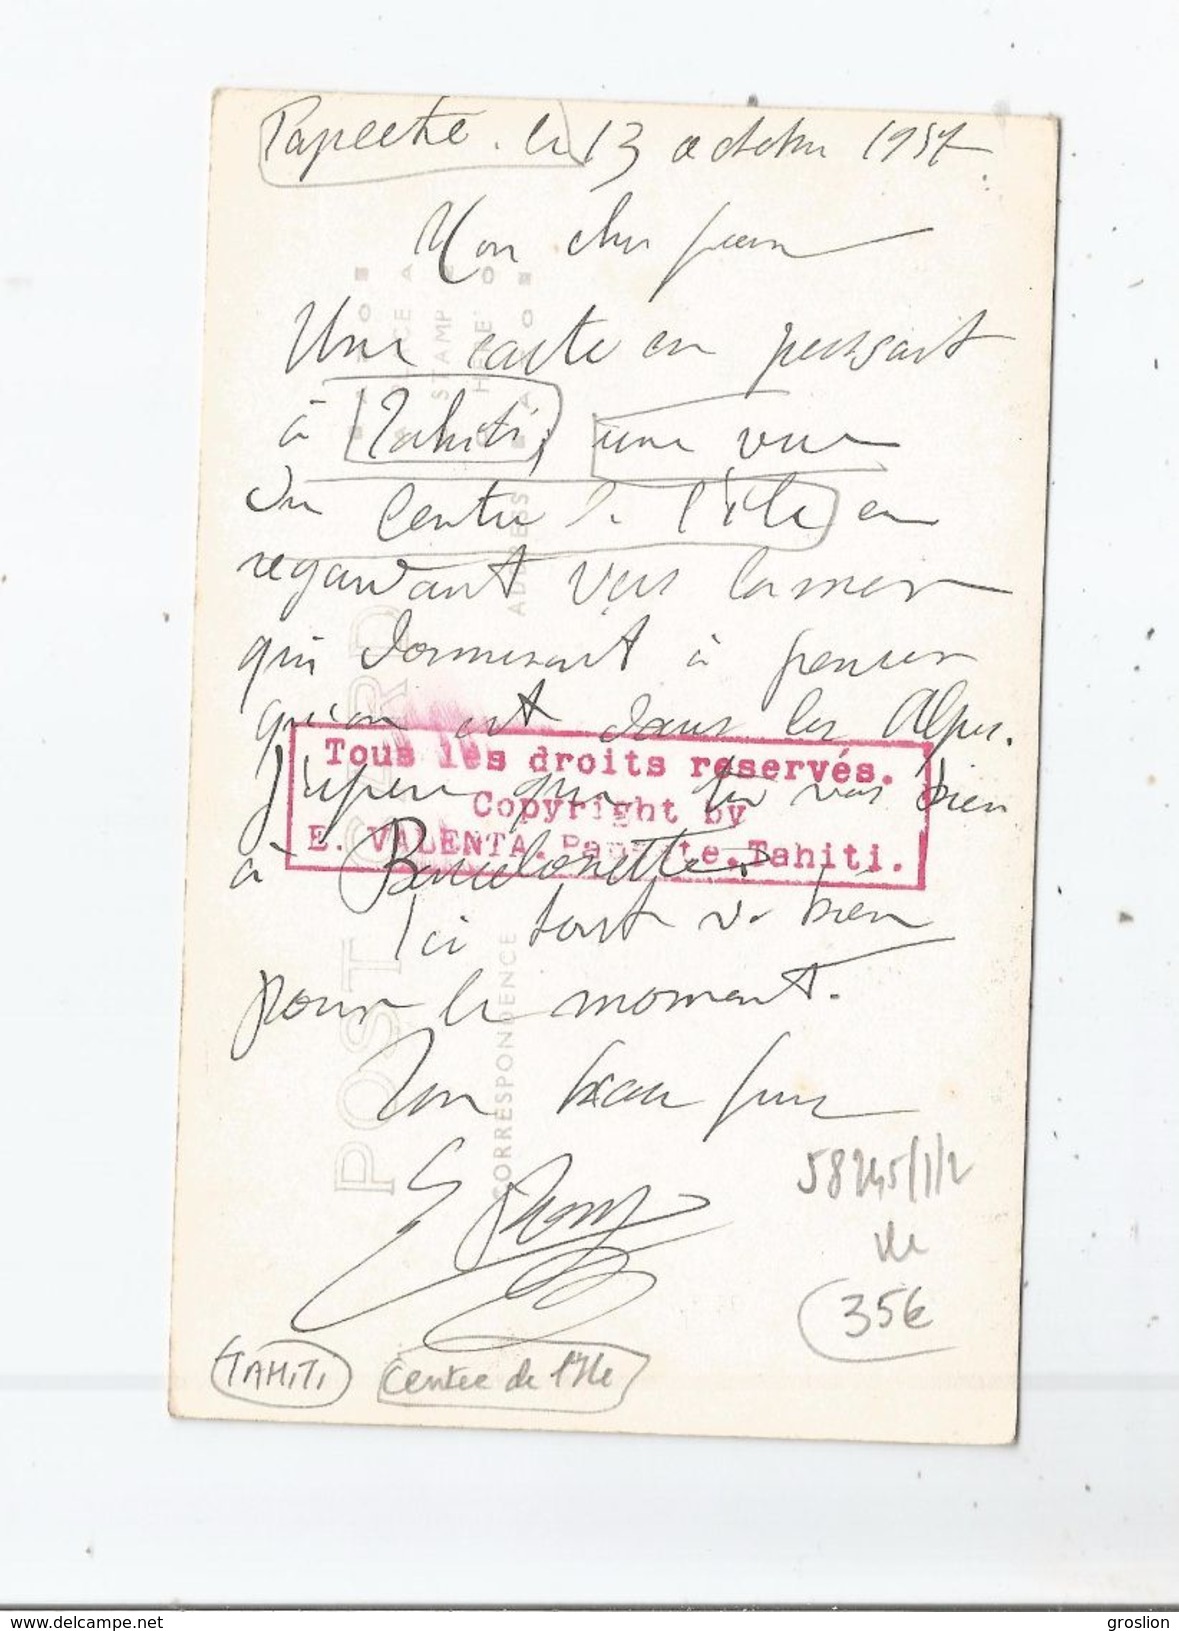 Papeete. le 13 octobre 1957
Mon cher Jean
Une carte en pensant
à Tahiti, une vue
du Centre de l'île en
regardant vers la mer
qui donnerait à penser
qu'on est dans les Alpes.
J'espère que tu vas bien
à Barcelonette.
Ici tout va bien
pour le moment.
Ton beau père
Tous les droits reservés.
Copyright by
E. VALENTA. Papeete. Tahiti.
POST CARD
CORRESPONDENCE
ADDRESS
PLACE
STAMP
HERE
58245/1/2
35€
TAHITI
Centre de l'Ile
www.delcampe.net
groslion